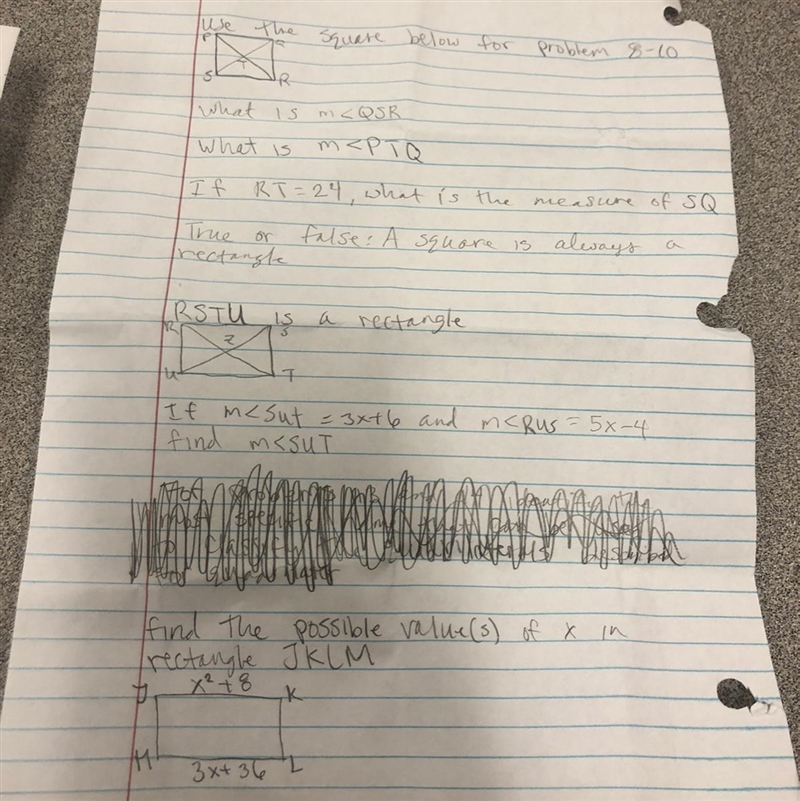 Use the square below for problem 8-10
P Q
T
S R
What is m<QSR
What is m<PTQ
If RT=24, what is the measure of SQ
True or false: A square is always a
rectangle
RSTU is a rectangle
R S
Z
U T
If m<Sut = 3x+6 and m<RUS = 5x-4
find m<SUT
find the possible value(s) of x in
rectangle JKLM
J x²+8 K
M 3x+36 L